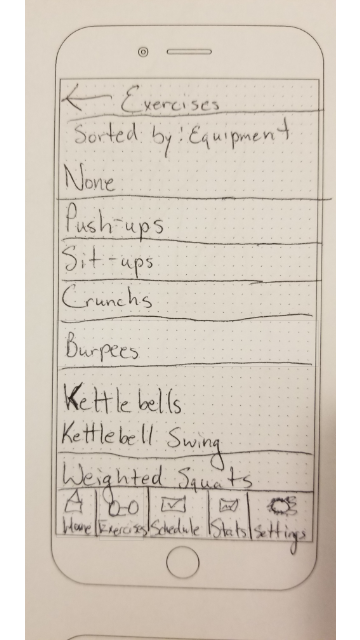 ← Exercises
Sorted by: Equipment
None
Push-ups
Sit-ups
Crunchs
Burpees
Kettlebells
Kettlebell Swing
Weighted Squats
Home Exercises Schedule Stats Settings